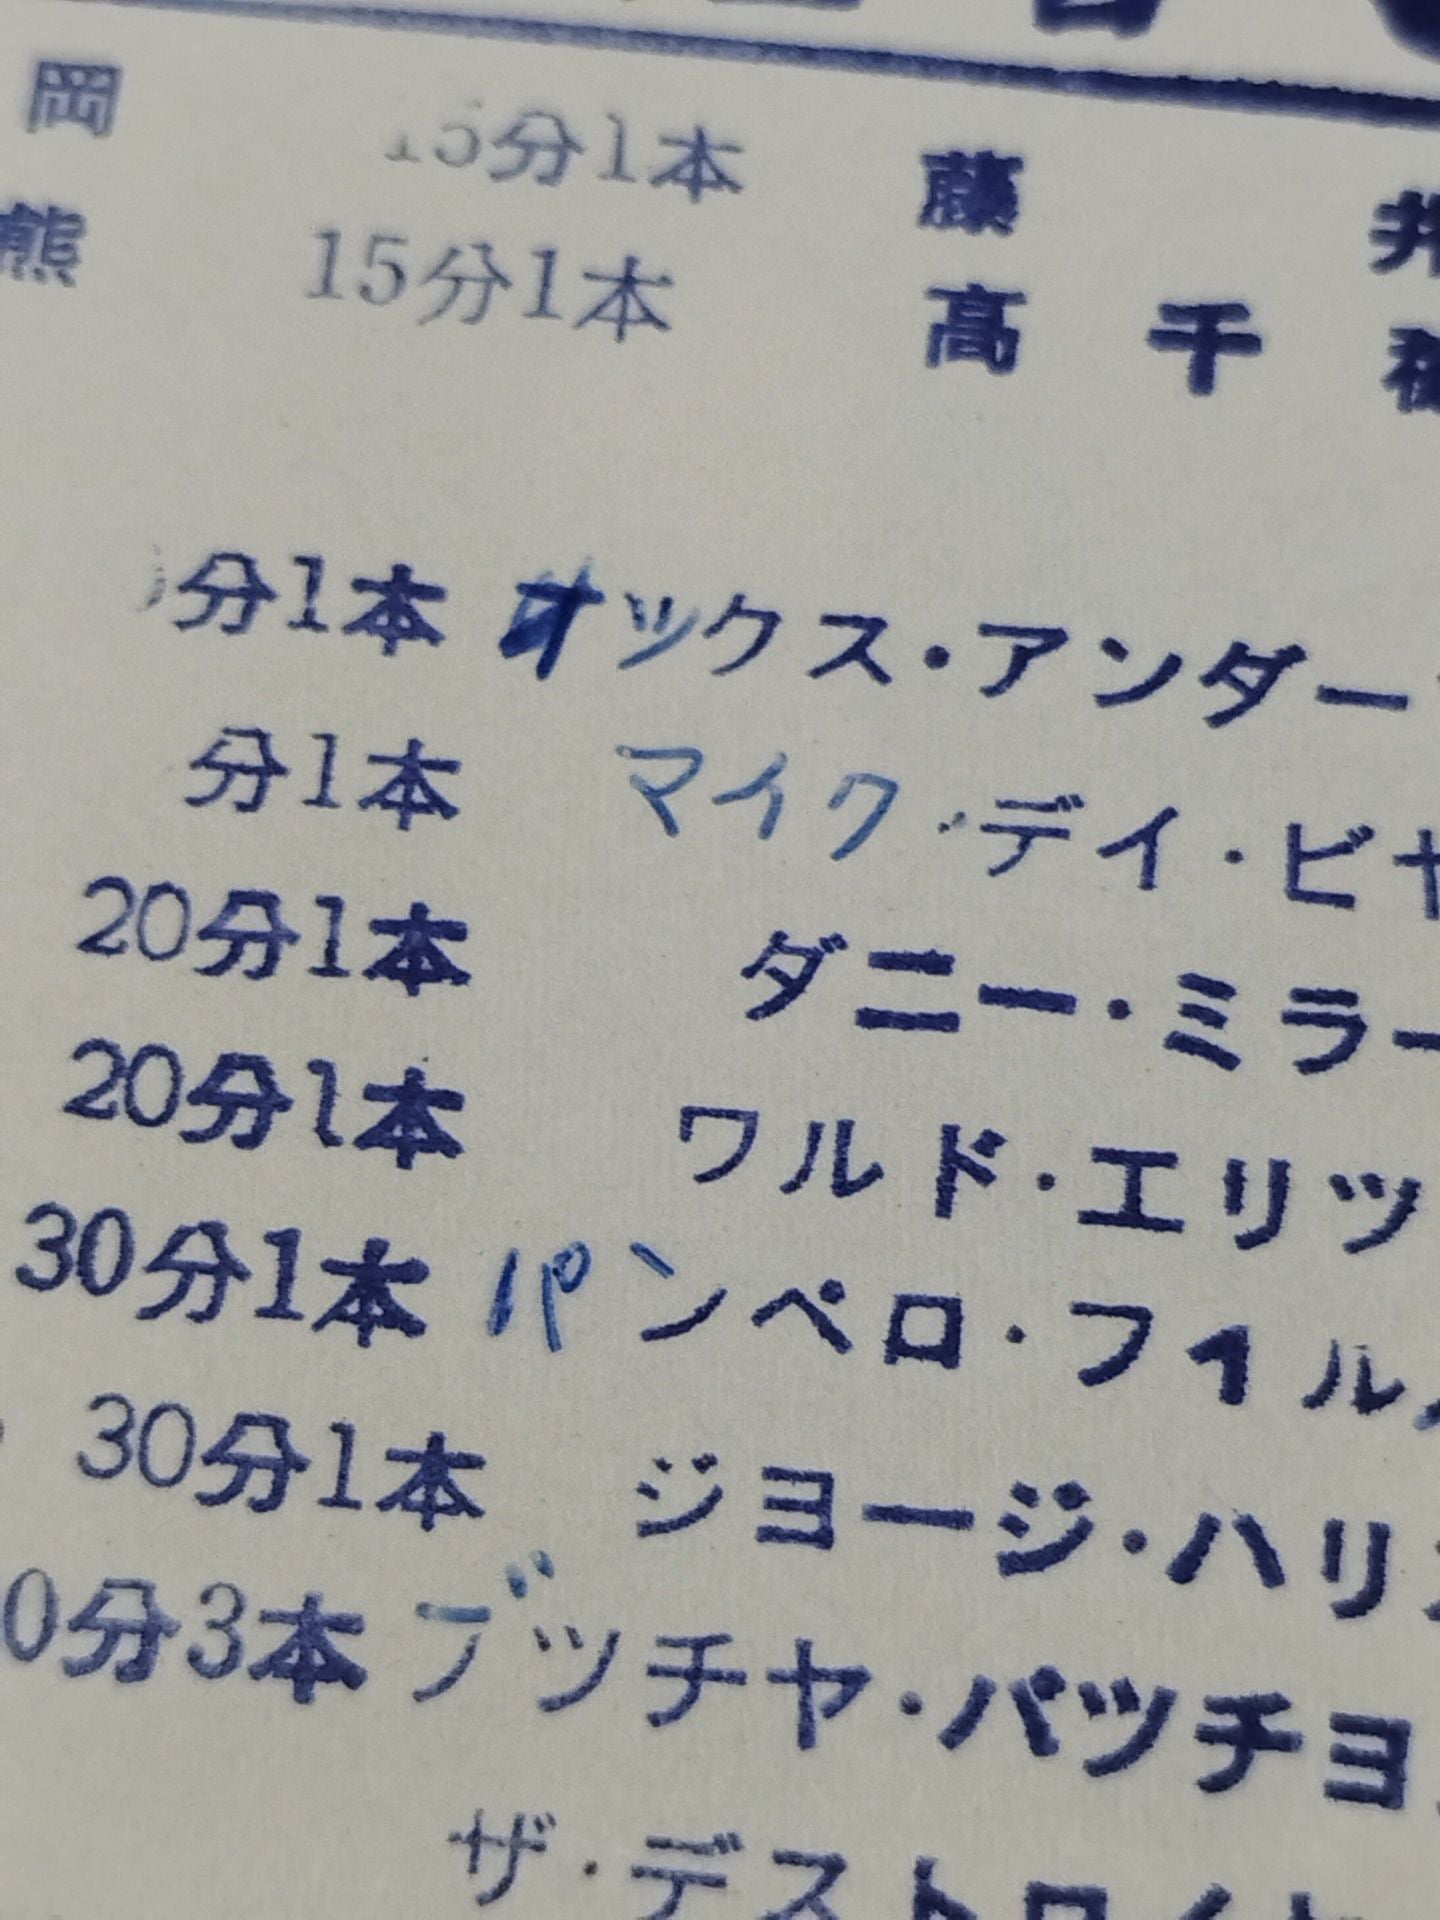 岡 15分1本 藤 井
熊 15分1本 高 千 穂
分1本 オックス・アンダー
分1本 マイク・デイ・ビヤ
20分1本 ダニー・ミラー
20分1本 ワルド・エリツ
30分1本 パンペロ・フイル
30分1本 ジヨージ・ハリ
0分3本 ブツチヤ・バツチヨ
ザ・デストロイヤ